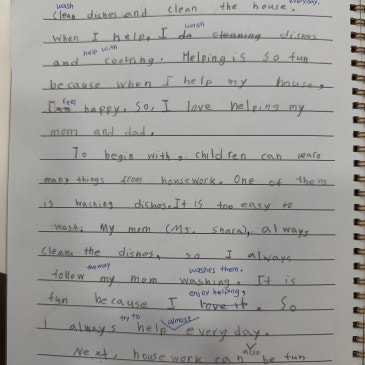 wash everyday.
clean dishes and clean the house.
wash
When I help, I do cleaning dishes
help with
and cooking. Helping is so fun
because when I help my house,
feel
I am happy. So, I love helping my
mom and dad.
To begin with, children can learn
many things from housework. One of them
is washing dishes. It is too easy to
wash. My mom (Ms. ), always
cleans the dishes, so I always
the way washes them.
follow my mom washing. It is
enjoy helping,
fun because I love it. So
try to almost
I always help every day.
also
Next, housework can be fun